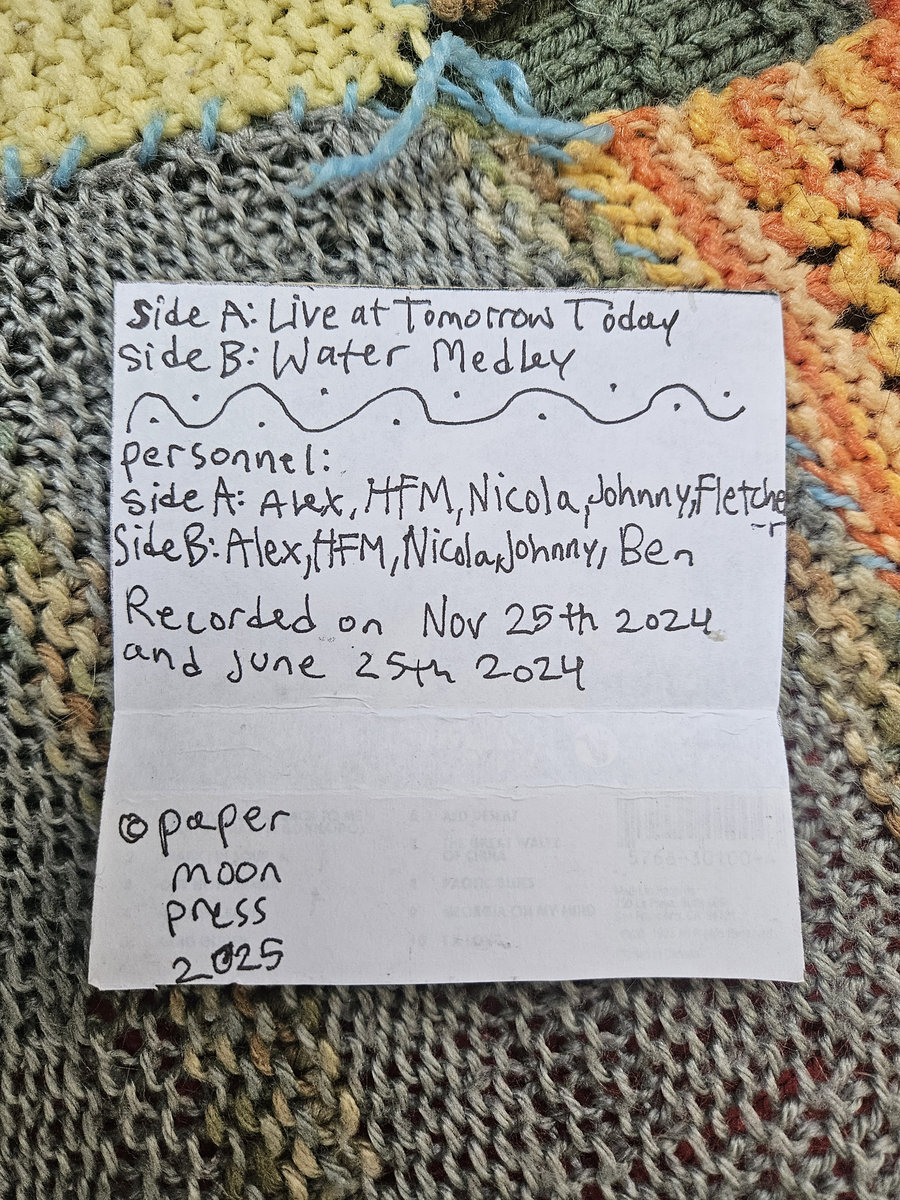 Side A: Live at Tomorrow Today
Side B: Water Medley
personnel:
Side A: Alex, HFM, Nicola, Johnny, Fletche-r
Side B: Alex, HFM, Nicola, Johnny, Ben
Recorded on Nov 25th 2024
and june 25th 2024
© paper
moon
press
2025